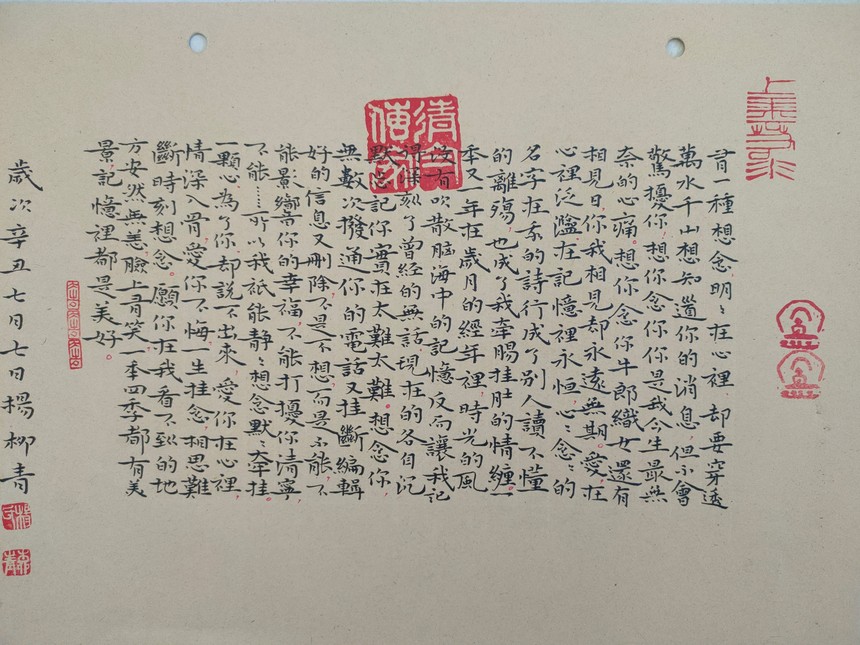 上善若水
有一種想念，明明在心裡，却要穿透
萬水千山，想知道你的消息，但不會
驚擾你，想你念你，你是我今生最無
奈的心痛。想你念你，牛郎織女還有
相見日，你我相見却永遠無期。愛，在
心裡泛濫，在記憶裡永恒，心心念念的
名字在我的詩行成了别人讀不懂
的離殤，也成了我牽腸挂肚的情纏。一
年又一年，在歲月的經年裡，時光的風
没有吹散腦海中的記憶，反而讓我記
得深刻了曾經的無話，現在的各自沉
默，忘記你實在太難太難。想念你，
無數次撥通你的電話又挂斷，編輯
好的信息又刪除，不是不想，而是不能，不
能影響你的幸福，不能打擾你清寧，
不能……所以我祇能静静想念，默默牽挂。
一顆心為了你却說不出來，愛你在心裡，
情深入骨，愛你不悔，一生挂念，相思難
斷，時刻想念。願你在我看不到的地
方安然無恙，臉上有笑，一年四季都有美
景，記憶裡都是美好。
歲次辛丑七月七日楊柳青